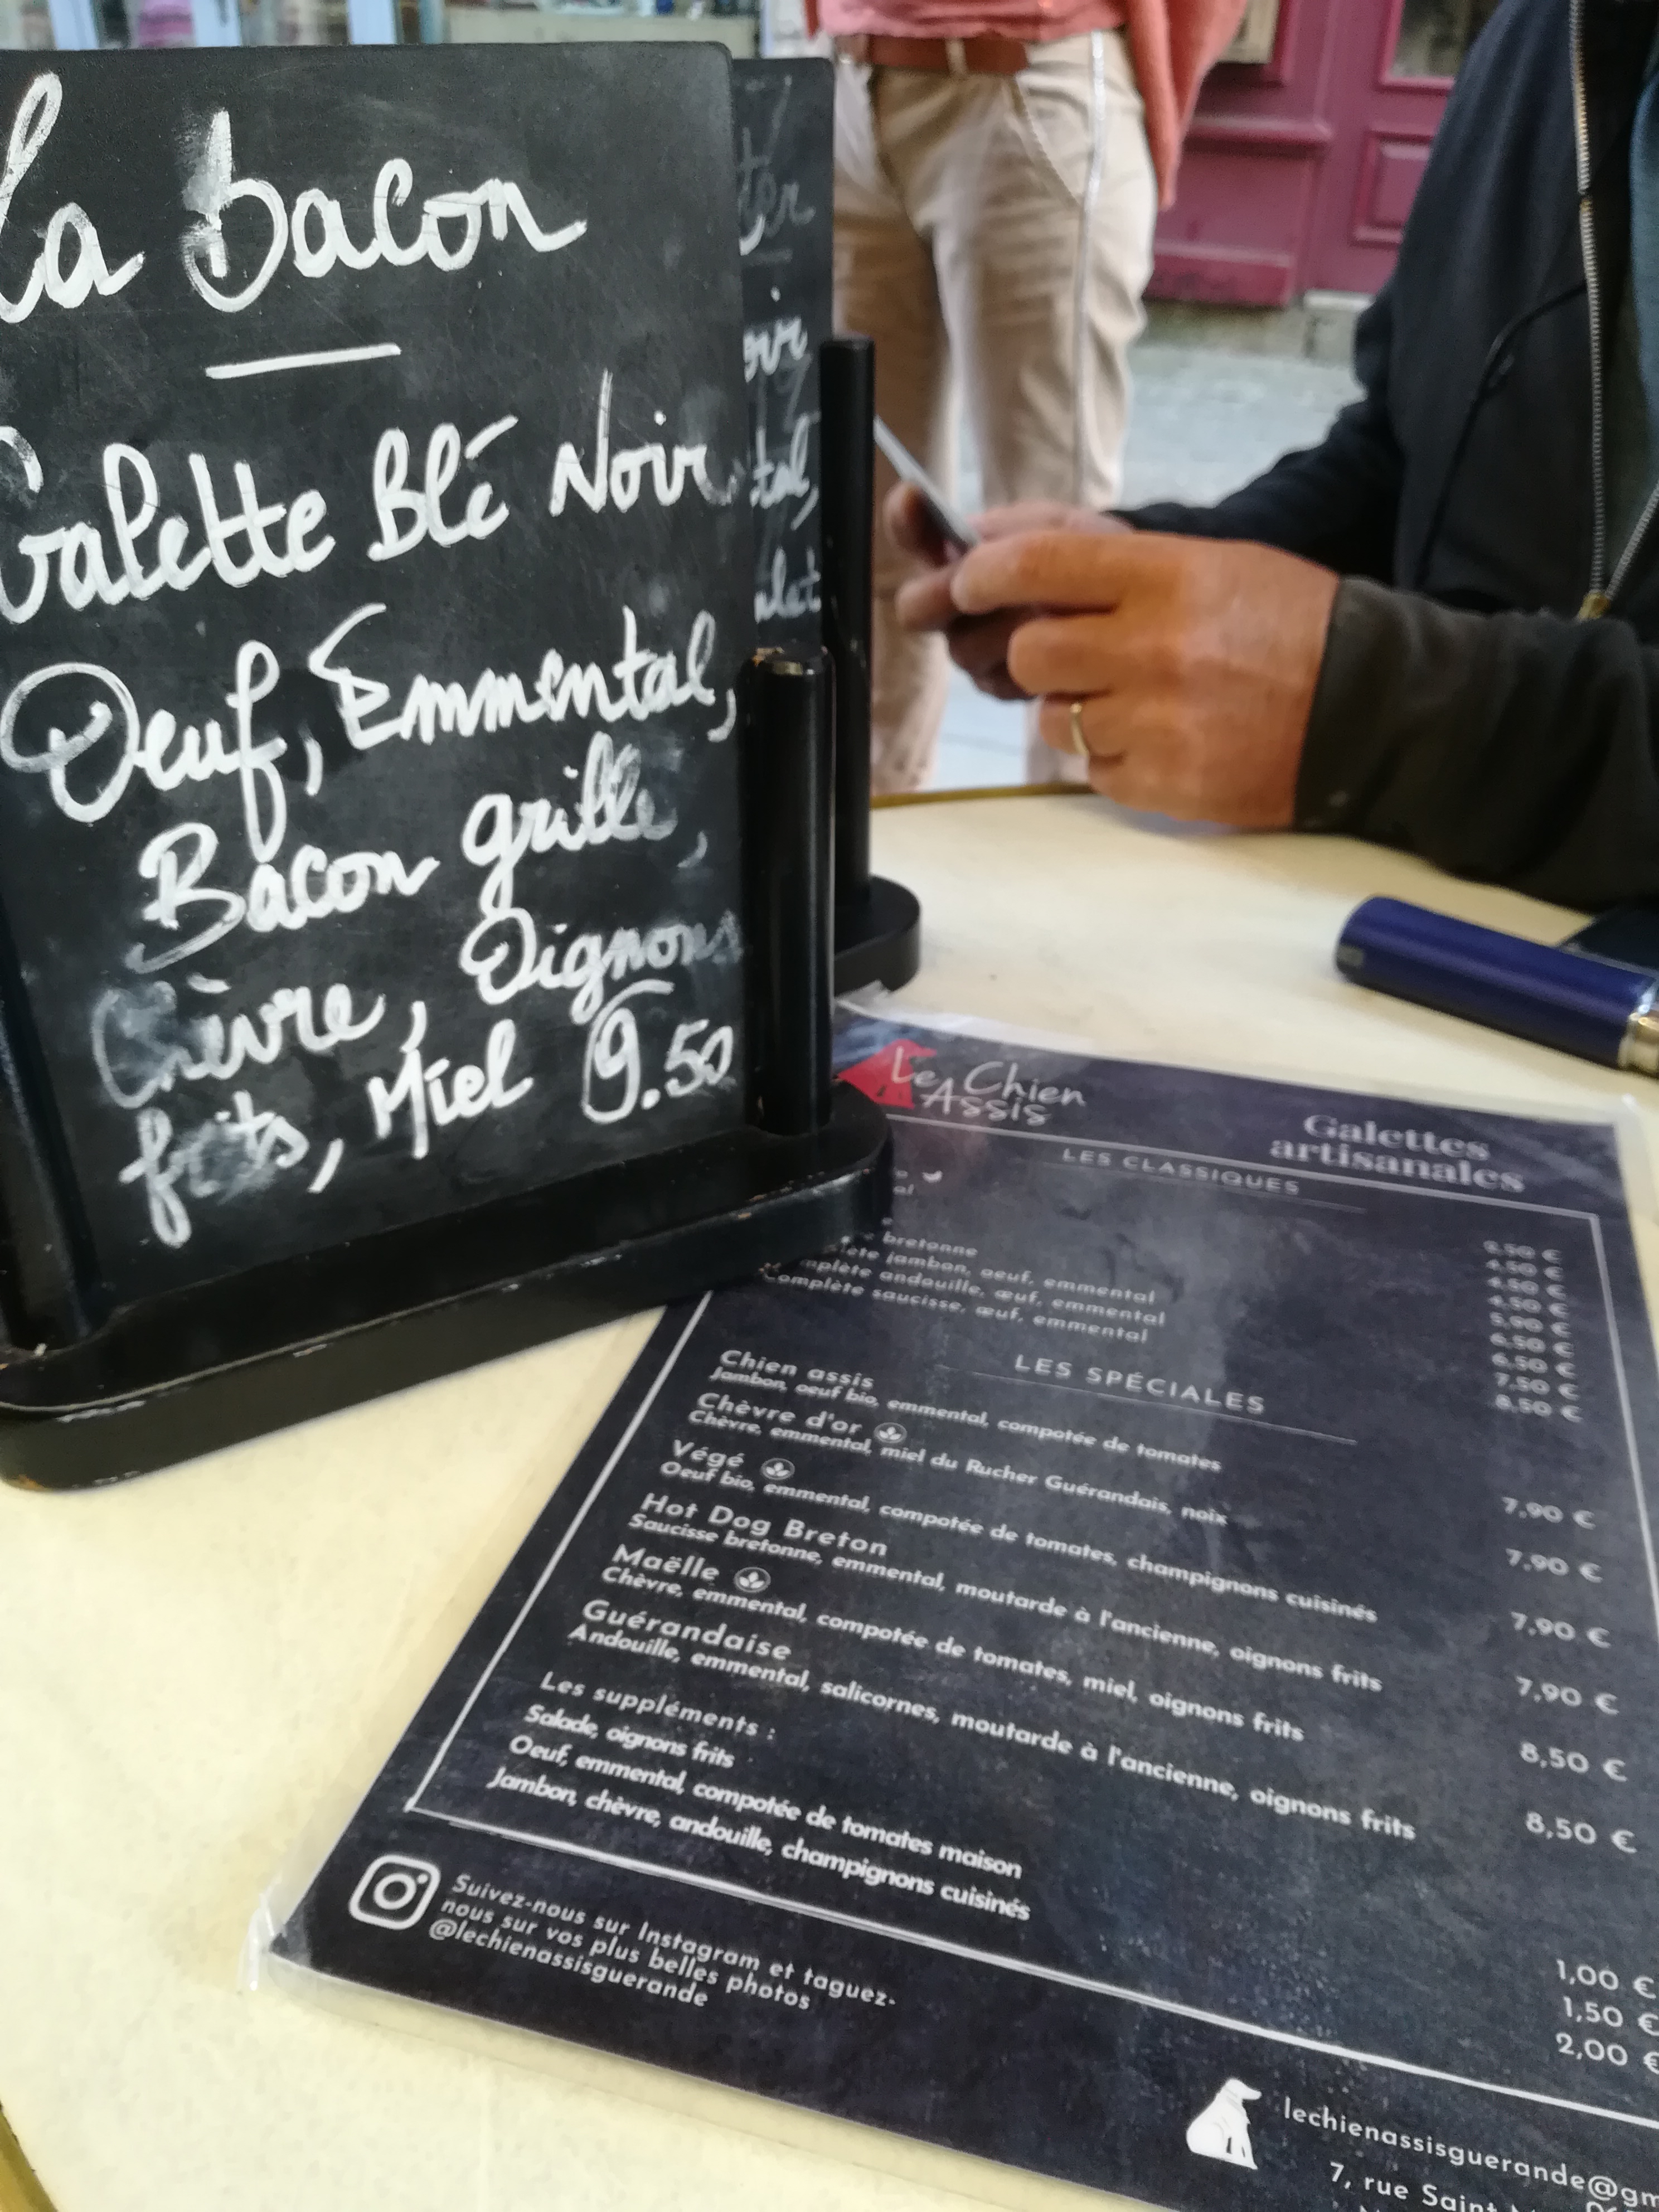 La Bacon
Galette Blé Noir
Oeuf, Emmental,
Bacon grillé,
Chèvre, Oignons
frits, Miel 9.50
Le Chien
Assis
Galettes
artisanales
LES CLASSIQUES
bretonne
jambon, oeuf, emmental
complète andouille, œuf, emmental
Complète saucisse, œuf, emmental
4,50 €
4,50 €
4,50 €
5,90 €
6,50 €
6,50 €
7,50 €
8,50 €
LES SPÉCIALES
Chien assis
Jambon, oeuf bio, emmental, compotée de tomates
7,90 €
Chèvre d'or
Chèvre, emmental, miel du Rucher Guérandais, noix
7,90 €
Végé
Oeuf bio, emmental, compotée de tomates, champignons cuisinés
7,90 €
Hot Dog Breton
Saucisse bretonne, emmental, moutarde à l'ancienne, oignons frits
7,90 €
Maëlle
Chèvre, emmental, compotée de tomates, miel, oignons frits
8,50 €
Guérandaise
Andouille, emmental, salicornes, moutarde à l'ancienne, oignons frits
8,50 €
Les suppléments :
Salade, oignons frits
1,00 €
Oeuf, emmental, compotée de tomates maison
1,50 €
Jambon, chèvre, andouille, champignons cuisinés
2,00 €
Suivez-nous sur Instagram et taguez-
nous sur vos plus belles photos
@lechienassisguerande
lechienassisguerande@gm
7, rue Saint